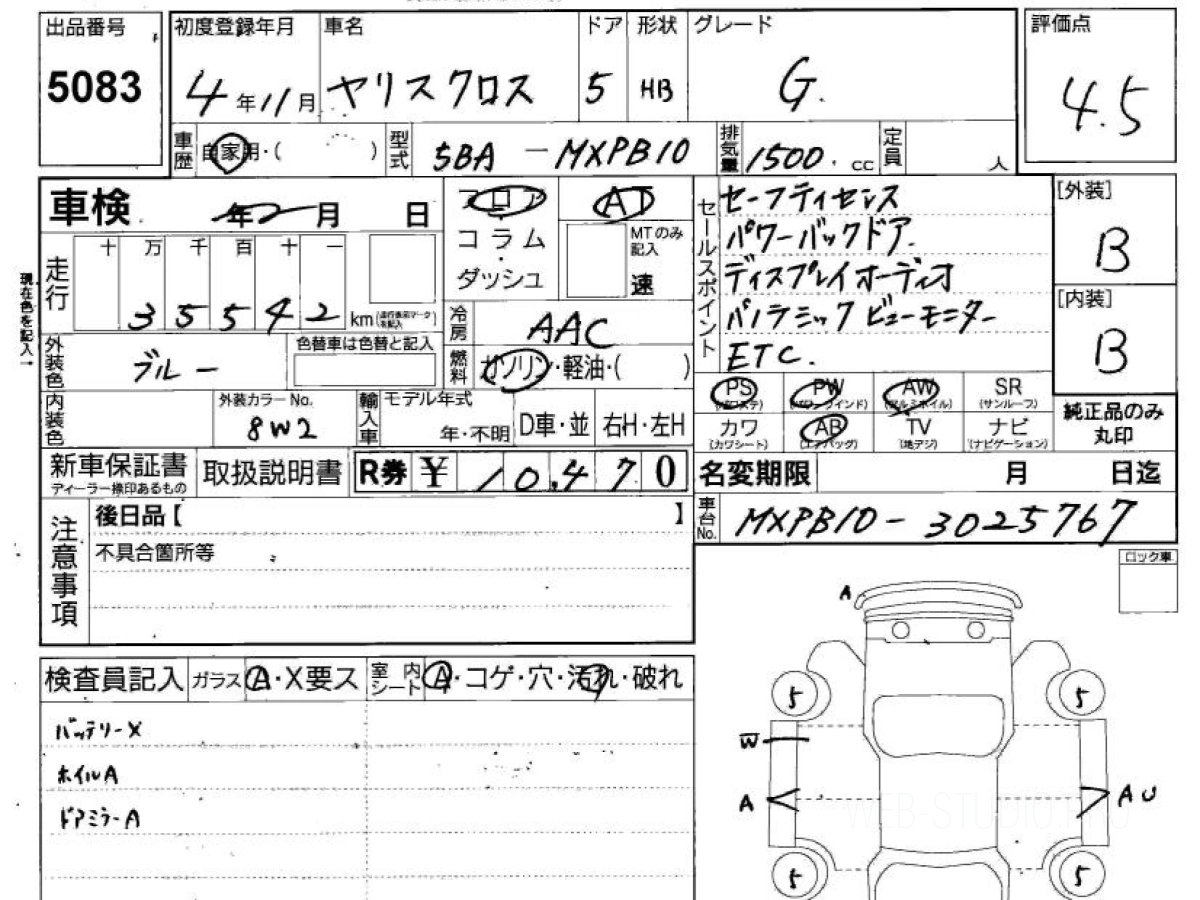 出品番号
5083
初度登録年月
4年11月
車名
ヤリスクロス
ドア
5
形状
HB
グレード
G.
評価点
4.5
車歴
自家用・( )
型式
5BA-MXPB10
排気量
1500.cc
定員
人
車検
年 月 日
フロア
コラム
・
ダッシュ
AT
MTのみ
記入
速
セールスポイント
セーフティセンス
パワーバックドア.
ディスプレイオーディオ
パノラミックビューモニター
ETC.
[外装]
B
[内装]
B
現在色を記入→
走行
十 万 千 百 十 一
3 5 5 4 2
km
冷房
AAC
燃料
ガソリン・軽油・( )
外装色
ブルー
色替車は色替と記入
内装色
外装カラーNo.
8W2
輸入車
モデル年式
年・不明
D車・並
右H・左H
PS
(パワステ)
PW
(パワーウインド)
AW
(アルミホイル)
SR
(サンルーフ)
カワ
(カワシート)
AB
(エアバッグ)
TV
(地デジ)
ナビ
(ナビゲーション)
純正品のみ
丸印
新車保証書
ディーラー捺印あるもの
取扱説明書
R券
¥ 10,470
名変期限
月 日迄
車台No.
MXPB10-3025767
注意事項
後日品【 】
不具合箇所等
ロック車
検査員記入
ガラス
A・X要ス
室内
シート
A・コゲ・穴・汚れ・破れ
バッテリーX
ホイルA
ドアミラーA
A
5
5
W
A
A U
5
5
WEB-STUDIO.PRO